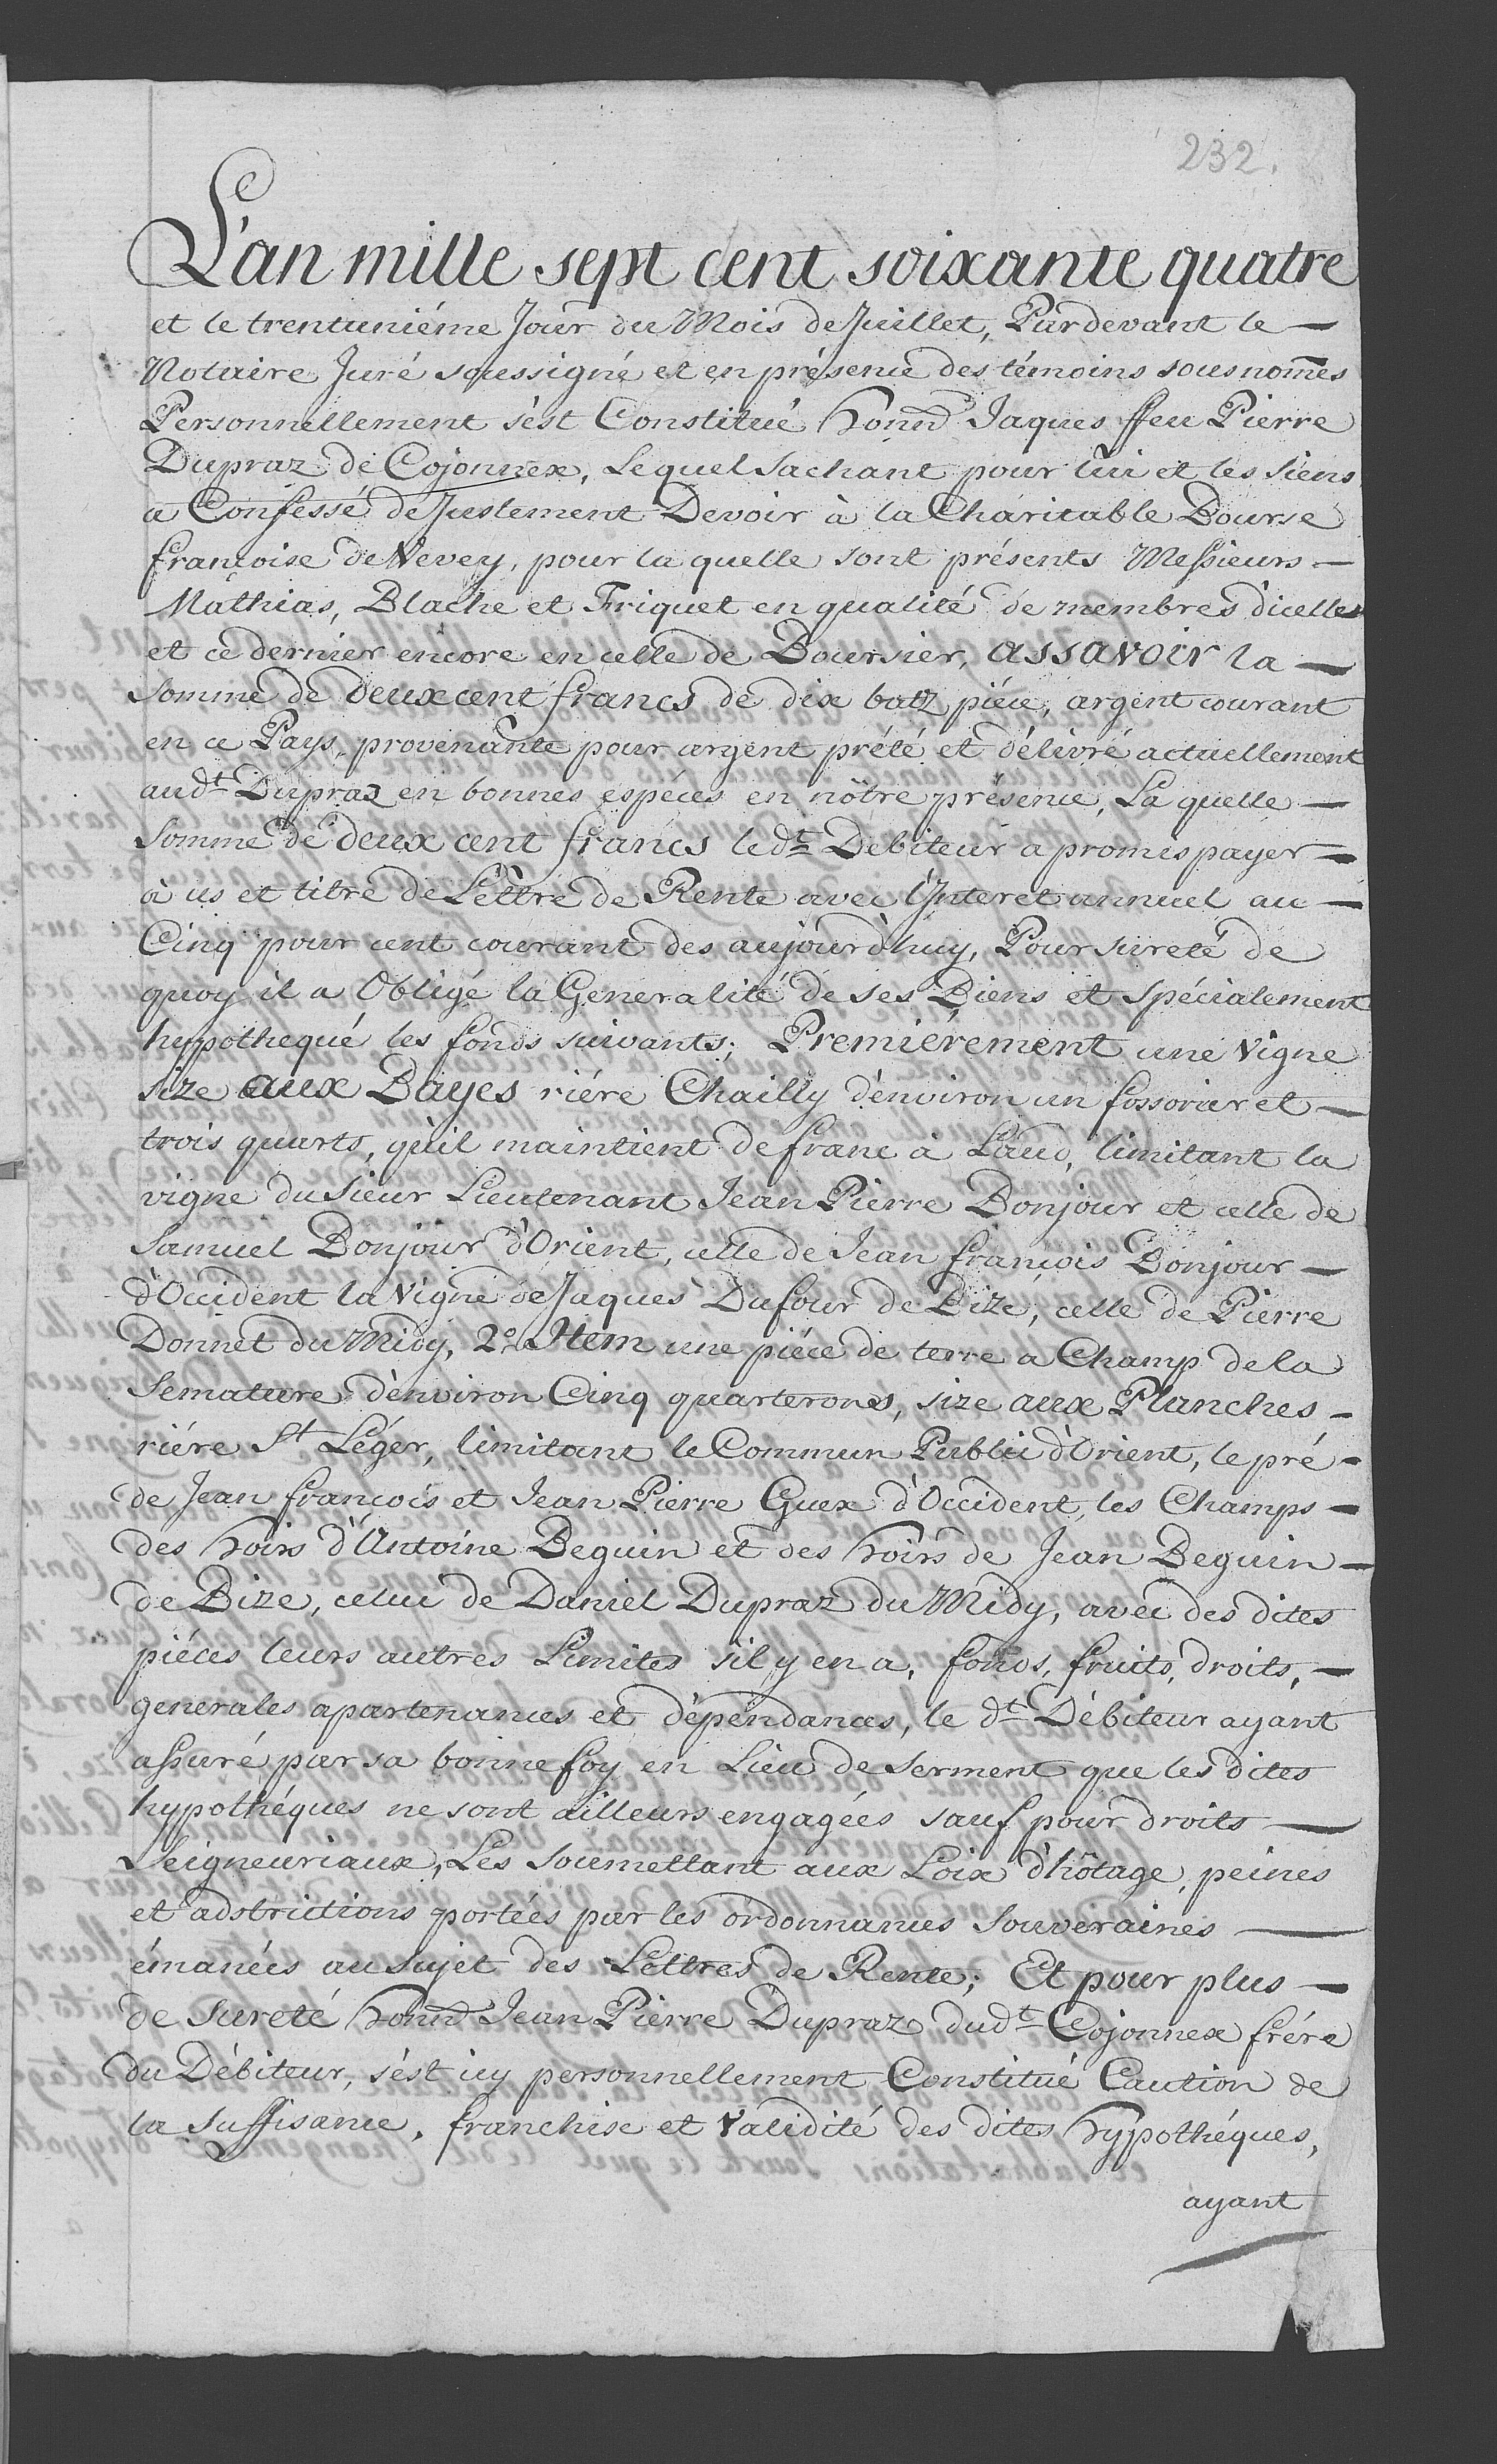 232.
L'an mille sept cent soixante quatre
et le trentuniéme Jour du Mois de Juillet, Pardevant le —
Notaire Juré soussigné et en présence des témoins sousnom̄és
Personnellement s'est Constitué honn̄d Jaques ffeu Pierre
Dupraz de Cojonnex, Lequel sachant pour lui et les siens
a Confessé de Justement Devoir à la Charitable Bourse
françoise de Vevey, pour la quelle sont présents Messieurs —
Mathias, Blache et Friquet en qualité de membres d'icelle
et ce dernier encore en celle de Boursier, assavoir la —
Somme de deux cent francs de dix batz piéce, argent courant
en ce Pays, provenante pour argent prété et délivré actuellement
aud.t Dupraz en bonnes espéces en nôtre présence, La quelle —
Somme de deux cent francs led.t Debiteur a promis payer —
à us et titre de Lettre de Rente avec l'Interet annuel au —
Cinq pour cent courant des aujourd'huy, Pour sureté de
quoy il a Obligé la Generalité de ses Biens et spécialement
hypothequé les fonds suivants; Premiérement une Vigne
size aux Bayes riére Chailly d'environ un fossorier et —
trois quarts, qu'il maintient de franc à Laud, limitant la
vigne du Sieur Lieutenant Jean Pierre Bonjour et celle de
Samuel Bonjour d'Orient, celle de Jean françois Bonjour —
d'Occident la Vigne de Jaques Dufour de Bize, celle de Pierre
Donnet du Midy, 2.° Item une piéce de terre a Champ de la
Semature d'environ Cinq quarterons, size aux Planches -
riére St Léger, limitant le Commun Public d'Orient, le pré -
de Jean françois et Jean Pierre Guex d'Occident, les Champs —
des hoirs d'Antoine Beguin et des hoirs de Jean Beguin —
de Bize, celui de Daniel Dupraz du Midy, avec des dites
piéces leurs autres Limites s'il y en a, fonds, fruits, droits, —
generales apartenances et dépendances, le d.t Débiteur ayant
assuré par sa bonne foy en Lieu de Serment que les dites
hypothéques ne sont ailleurs engagées sauf pour droits —
Seigneuriaux, Les soumettant aux Loix d'hôtage, peines
et adstrictions portées par les ordonnances Souveraines —
émanées au sujet des Lettres de Rente; Et pour plus —
de sureté honn̄d Jean Pierre Dupraz dud.t Cojonnex frére
du Débiteur, s'est icy personnellement Constitué Caution de
la Suffisance, franchise et Validité des dites hypothéques,
ayant